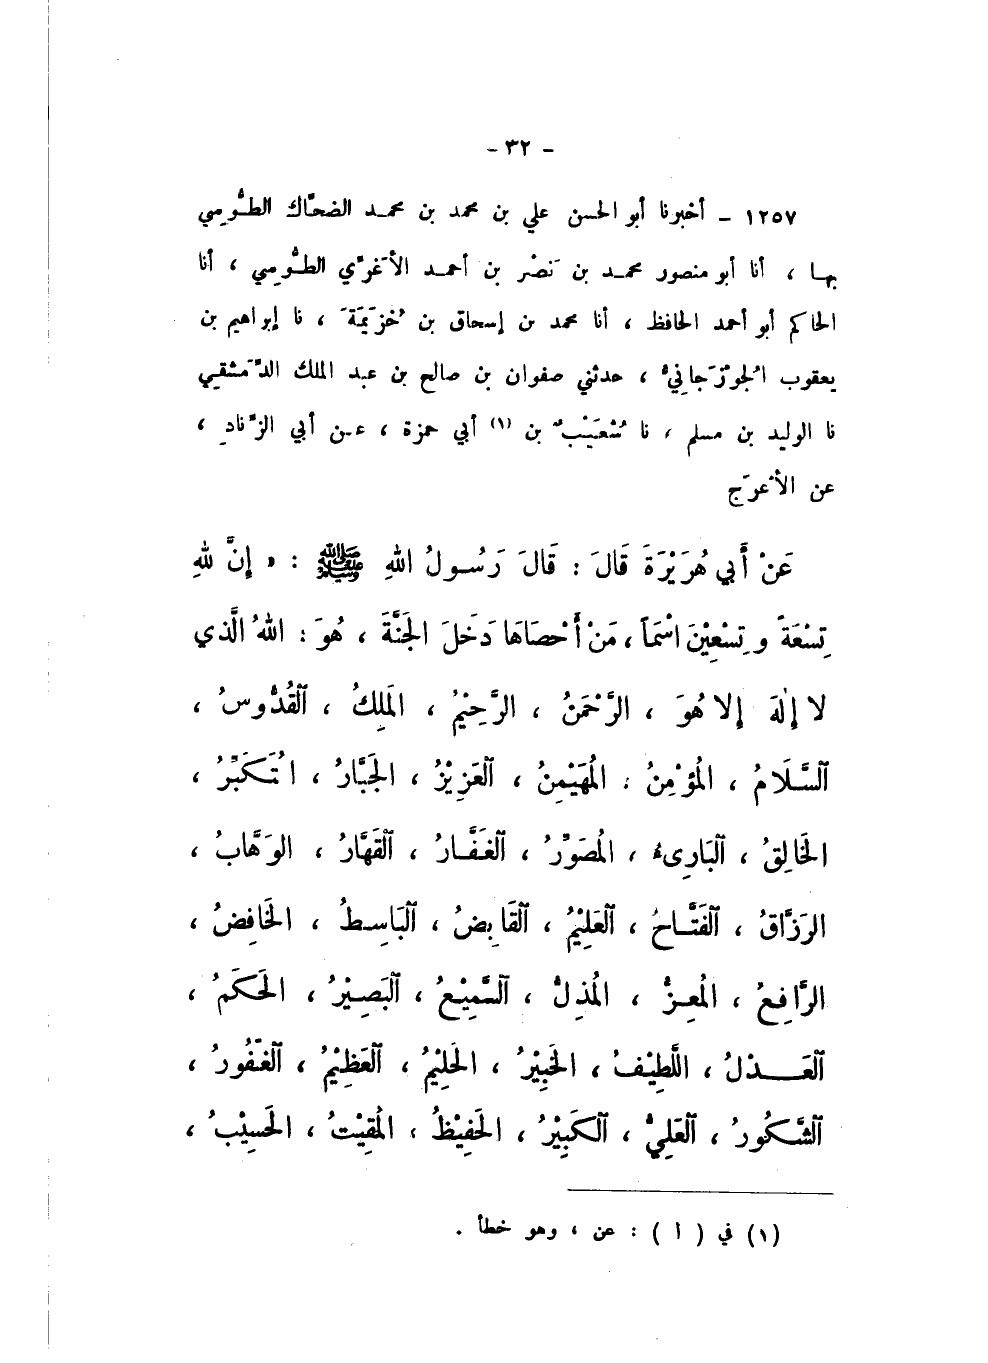 - ٣٢ -
١٢٥٧ - أخبرنا أبو الحسن علي بن محمد بن محمد الضحَّاك الطُّوسي
بها ، أنا أبو منصور محمد بن نَصْر بن أحمد الأَغرَّي الطُّوسي ، أنا
الحاكم أبو أحمد الحافظ ، أنا محمد بن إسحاق بن خُزَيمَةَ ، نا إبراهيم بن
يعقوب الجُوْزَجانيُّ ، حدثني صفوان بن صالح بن عبد الملك الدِّمَشقي
نا الوليد بن مسلم ، نا شُعَيْبُ بن (١) أبي حمزة ، عن أبي الزِّنادِ ،
عن الأَعرَج
عَنْ أَبي هُرَيْرَةَ قَالَ : قَالَ رَسُولُ اللهِ ﷺ : « إِنَّ للهِ
تِسْعَةً وتِسْعِيْنَ اسْمَاً ، مَنْ أَحْصَاهَا دَخَلَ الجَنَّةَ ، هُوَ : اللهُ الَّذي
لا إِلٰهَ إِلا هُوَ ، الرَّحْمَنُ ، الرَّحِيْمُ ، المَلِكُ ، ٱلقُدُّوسُ ،
ٱلسَّلَامُ ، المُؤْمِنُ ، المُهَيْمِنُ ، ٱلعَزِيْزُ ، الجَبَّارُ ، المُتَكَبِّرُ ،
الخَالِقُ ، ٱلبَارِىءُ ، المُصَوِّرُ ، ٱلغَفَّارُ ، ٱلقَهَّارُ ، الوَهَّابُ ،
الرَزَّاقُ ، ٱلفَتَّاحُ ، ٱلعَلِيْمُ ، ٱلقَابِضُ ، ٱلبَاسِطُ ، الخَافِضُ ،
الرَّافِعُ ، المُعِزُّ ، المُذِلُّ ، ٱلسَّمِيْعُ ، ٱلبَصِيْرُ ، الحَكَمُ ،
ٱلعَدْلُ ، اللَّطِيْفُ ، الخَبِيْرُ ، الحَلِيْمُ ، ٱلعَظِيْمُ ، ٱلغَفُورُ ،
ٱلشَّكُورُ ، ٱلعَلِيُّ ، ٱلكَبِيْرُ ، الحَفِيْظُ ، المُقِيْتُ ، الحَسِيْبُ ،
(١) في ( أ ) : عن ، وهو خطأ .